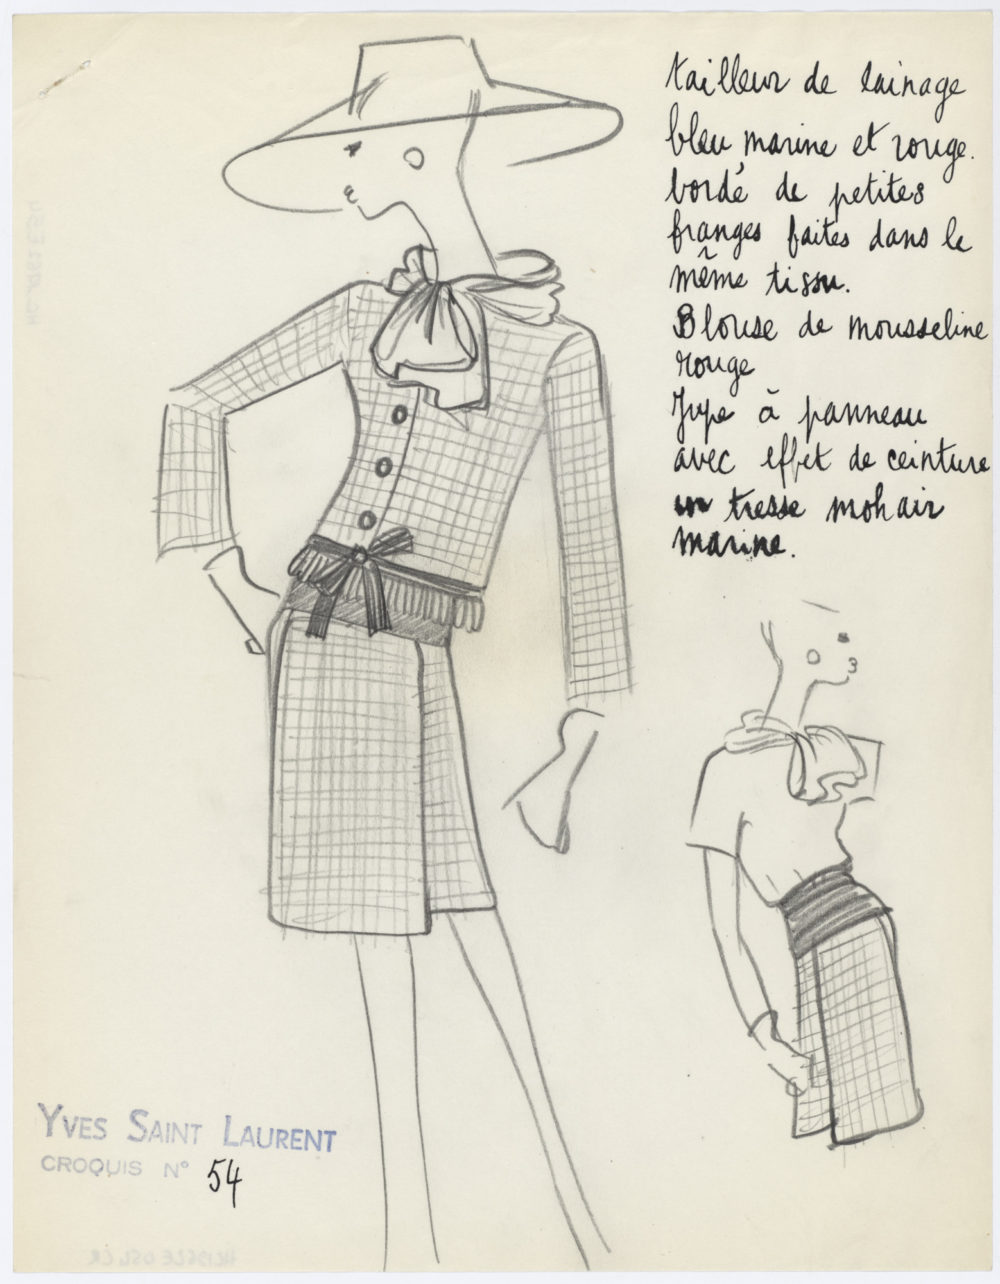 tailleur de lainage
bleu marine et rouge.
bordé de petites
franges faites dans le
même tissu.
Blouse de mousseline
rouge
Jupe à panneau
avec effet de ceinture
en tresse mohair
marine.
YVES SAINT LAURENT
CROQUIS N° 54